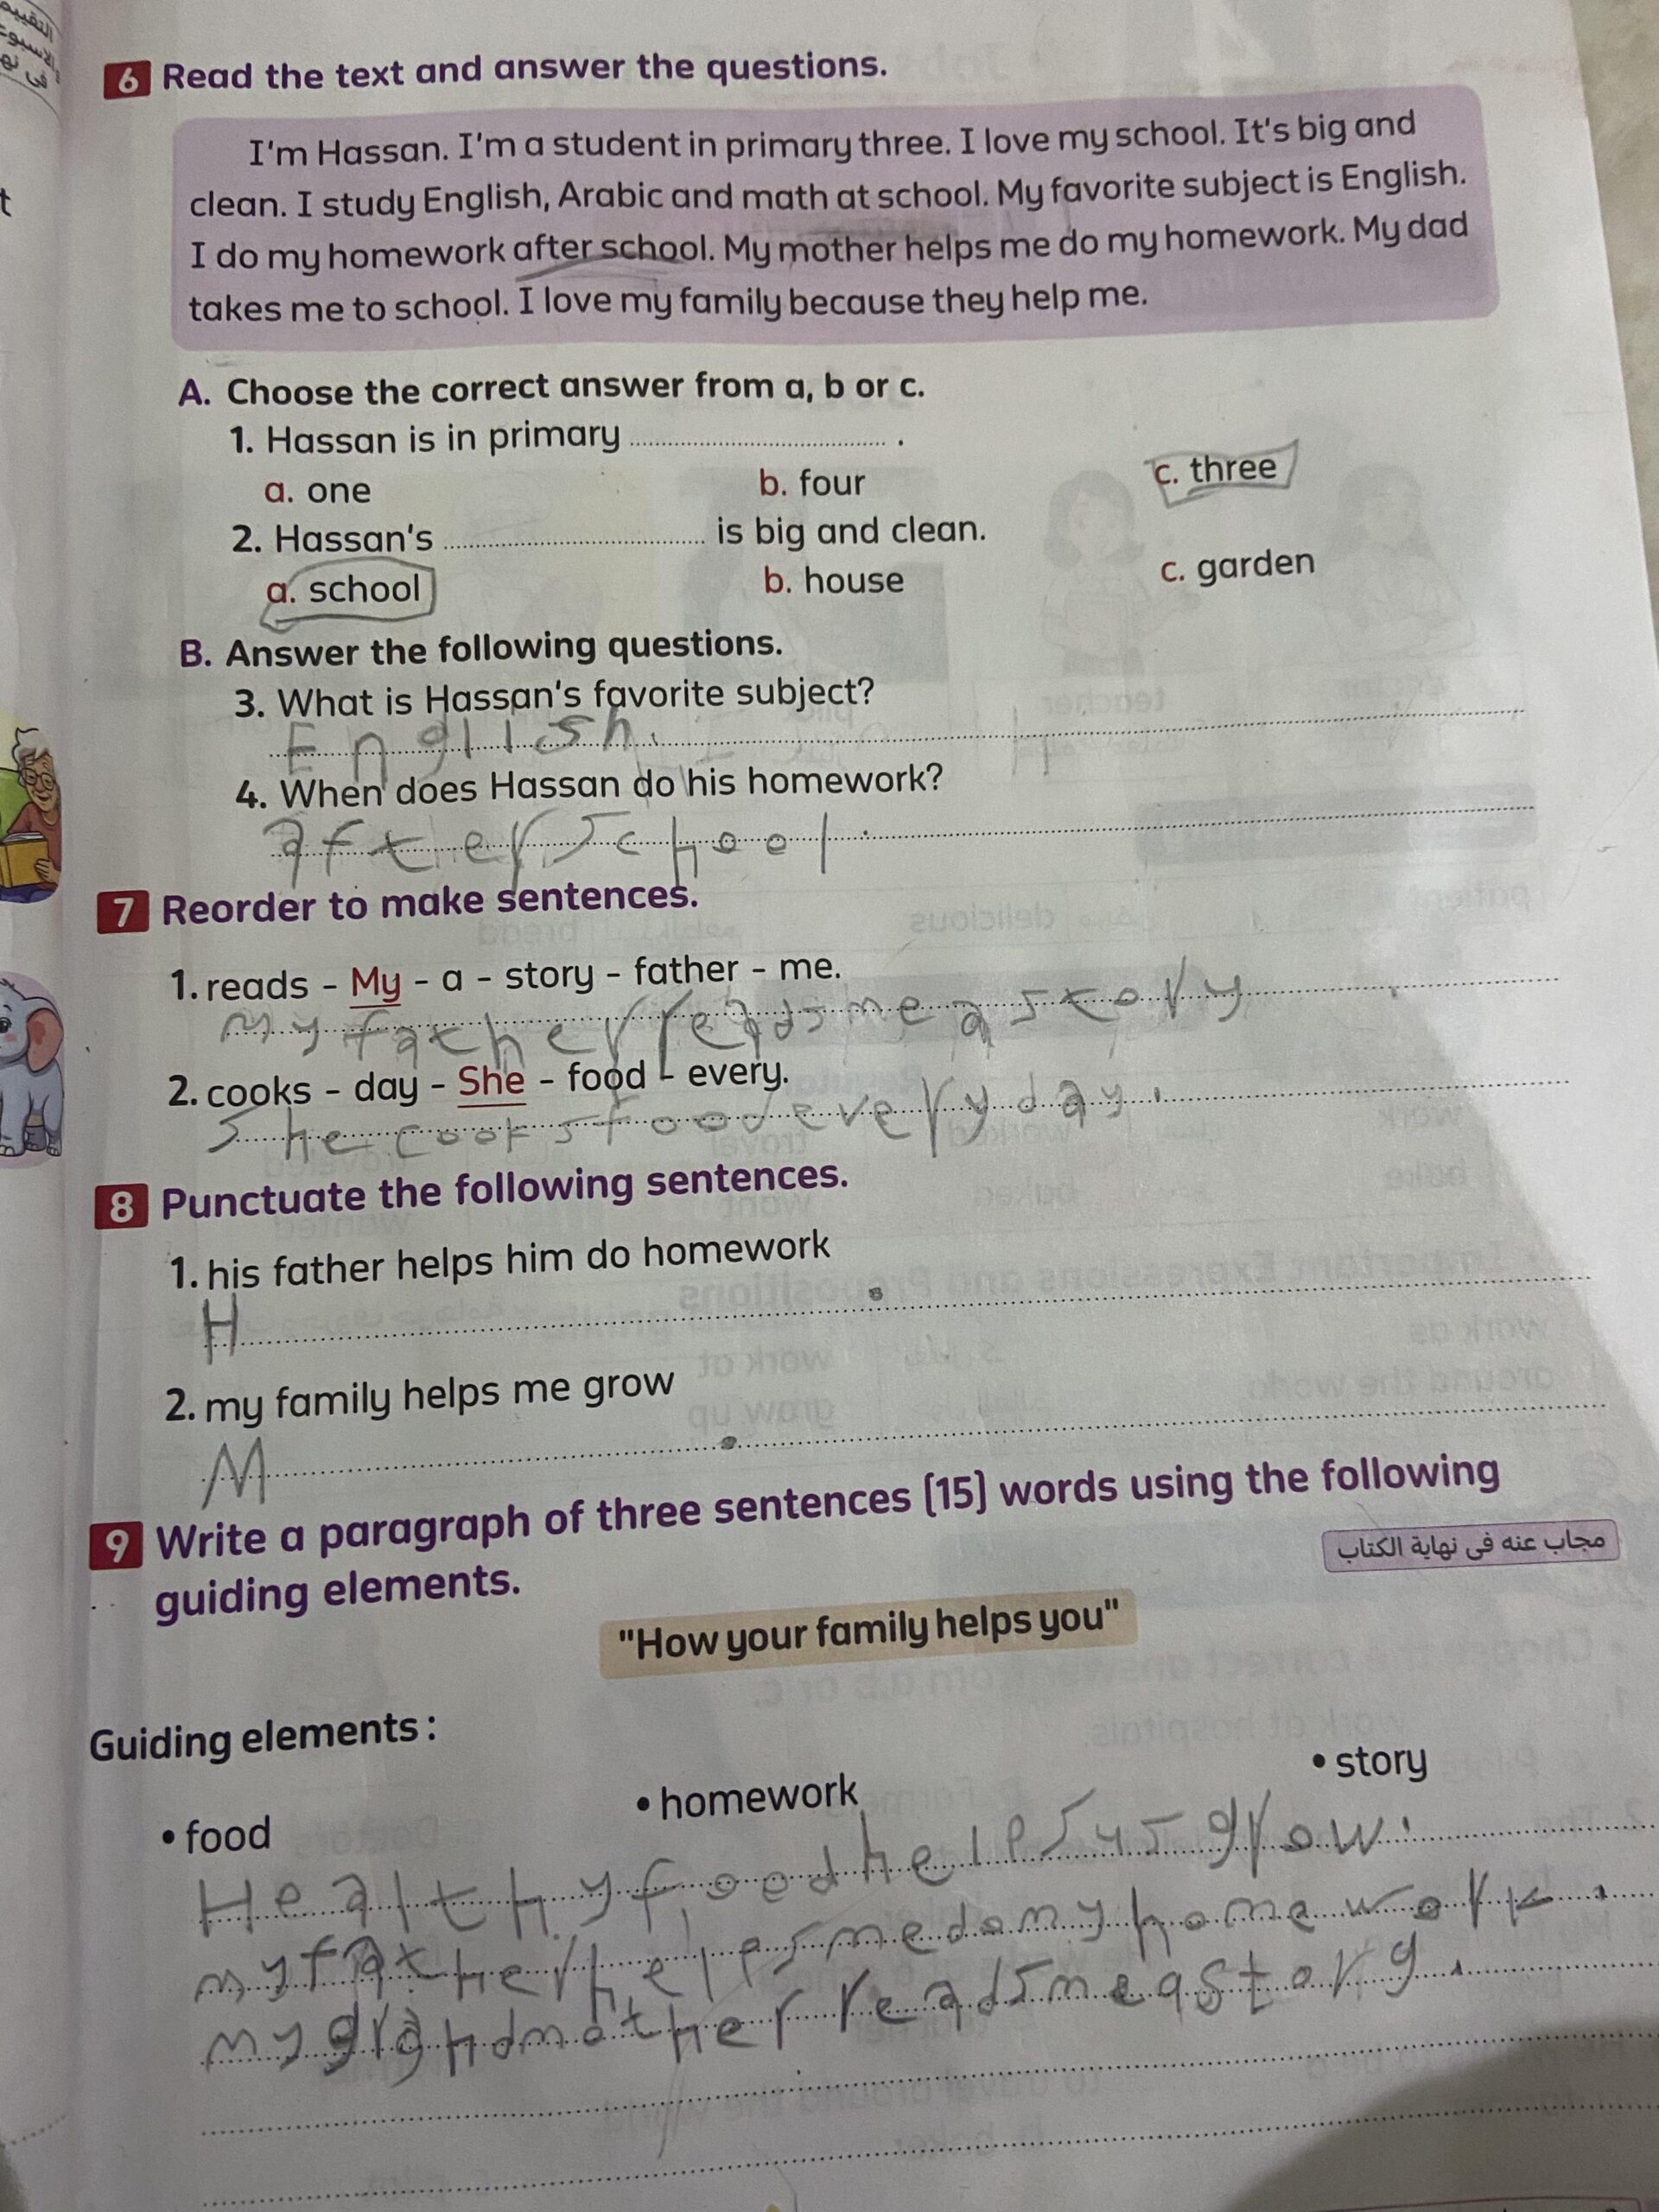 التقييم
الاسبوع
فى نها
t
6 Read the text and answer the questions.
I'm Hassan. I'm a student in primary three. I love my school. It's big and
clean. I study English, Arabic and math at school. My favorite subject is English.
I do my homework after school. My mother helps me do my homework. My dad
takes me to school. I love my family because they help me.
A. Choose the correct answer from a, b or c.
1. Hassan is in primary .................... .
a. one b. four c. three
2. Hassan's .................... is big and clean.
a. school b. house c. garden
B. Answer the following questions.
3. What is Hassan's favorite subject?
English.
4. When does Hassan do his homework?
after school.
7 Reorder to make sentences.
1. reads - My - a - story - father - me.
my father reads me a story.
2. cooks - day - She - food - every.
She cooks food every day.
8 Punctuate the following sentences.
1. his father helps him do homework
H .
2. my family helps me grow
M .
9 Write a paragraph of three sentences (15) words using the following
guiding elements.
مجاب عنه فى نهاية الكتاب
"How your family helps you"
Guiding elements :
• food • homework • story
Healthy food helps us grow.
my father helps me do my home work.
my grandmother reads me a story.